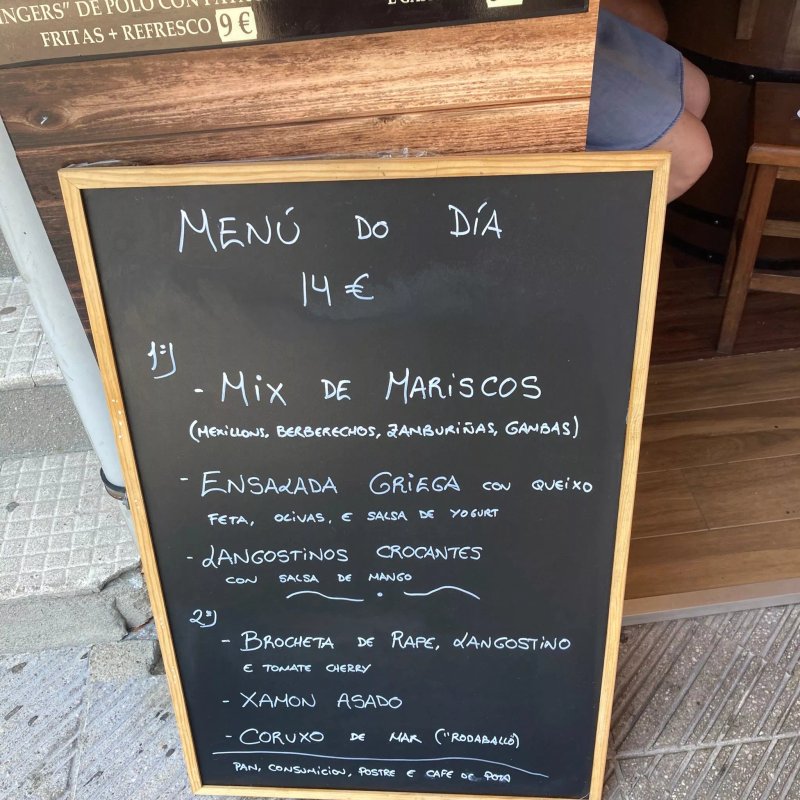 INGERS" DE POLO CON PATA
FRITAS + REFRESCO 9 €
MENÚ DO DÍA
14 €
1º)
- MIX DE MARISCOS
(MEXILLONS, BERBERECHOS, ZAMBURIÑAS, GAMBAS)
- ENSALADA GRIEGA CON QUEIXO
FETA, OLIVAS, E SALSA DE YOGURT
- LANGOSTINOS CROCANTES
CON SALSA DE MANGO
2º)
- BROCHETA DE RAPE, LANGOSTINO
E TOMATE CHERRY
- XAMON ASADO
- CORUXO DE MAR ("RODABALLO)
PAN, CONSUMICION, POSTRE E CAFE DE POTA